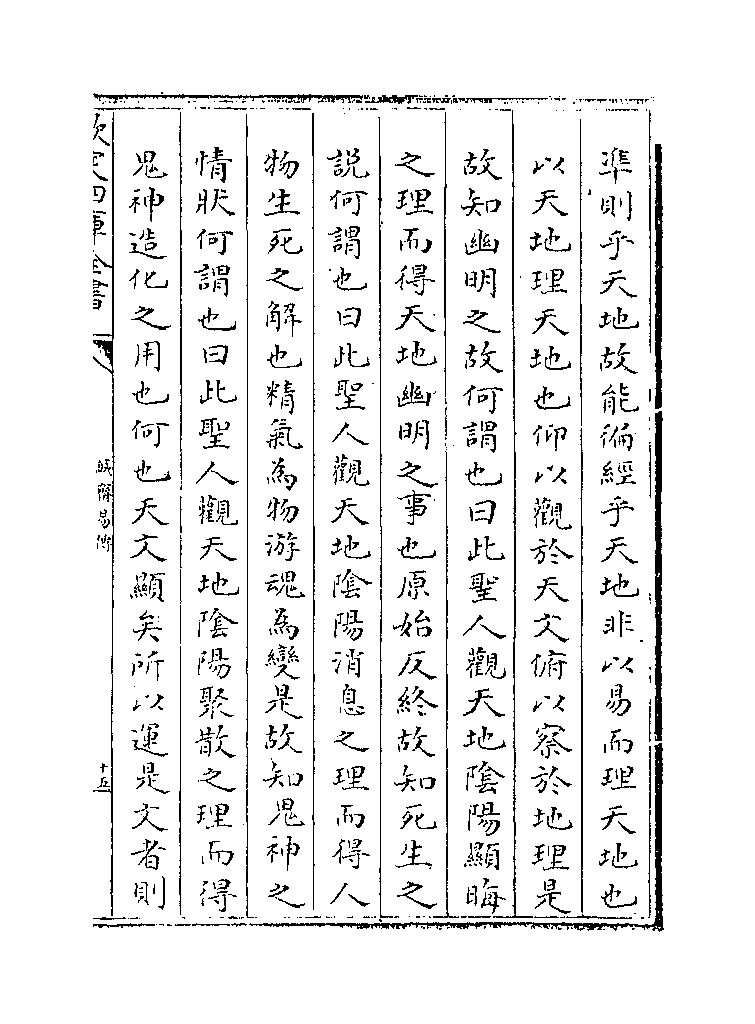 準則乎天地故能徧經乎天地非以易而理天地也
以天地理天地也仰以觀於天文俯以察於地理是
故知幽明之故何謂也曰此聖人觀天地陰陽顯晦
之理而得天地幽明之事也原始反終故知死生之
說何謂也曰此聖人觀天地陰陽消息之理而得人
物生死之解也精氣為物游魂為變是故知鬼神之
情狀何謂也曰此聖人觀天地陰陽聚散之理而得
鬼神造化之用也何也天文顯矣所以運是文者則
欽定四庫全書
誠齋易傳
十五